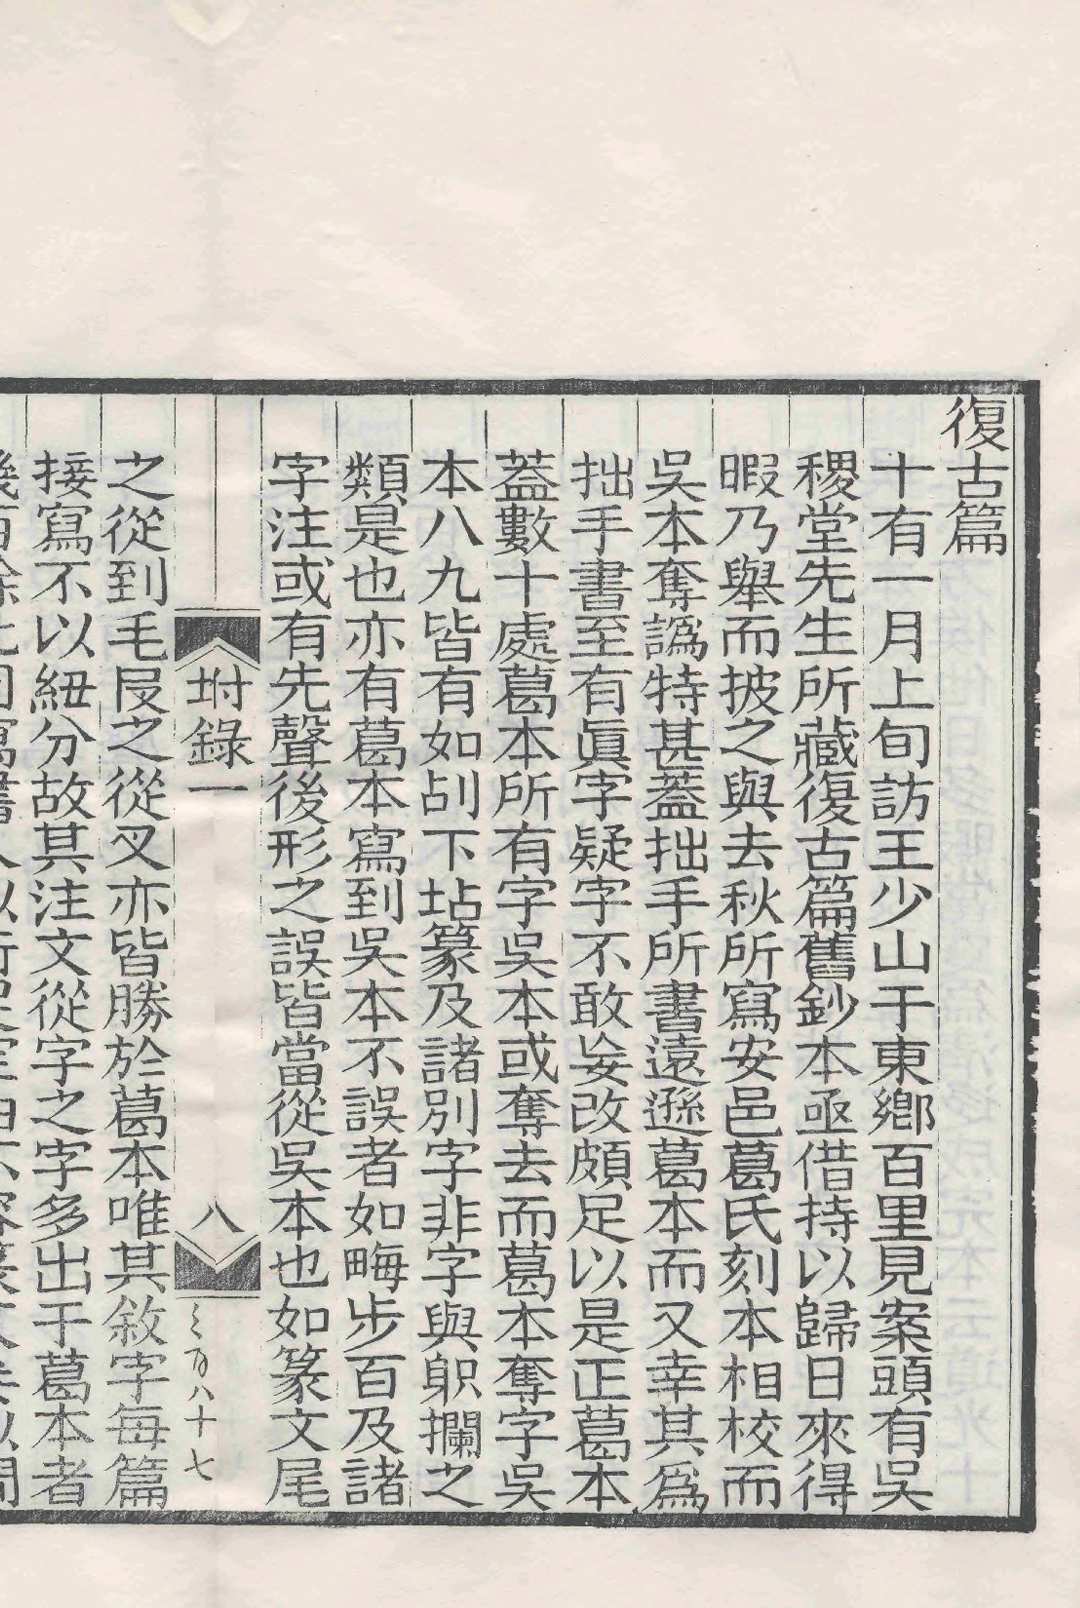 復古篇
十有一月上旬訪王少山于東鄉百里見案頭有吳
稷堂先生所藏復古篇舊鈔本亟借持以歸日來得
暇乃舉而披之與去秋所寫安邑葛氏刻本相校而
吳本奪譌特甚蓋拙手所書遠遜葛本而又幸其爲
拙手書至有眞字疑字不敢妄改頗足以是正葛本
蓋數十處葛本所有字吳本或奪去而葛本奪字吳
本八九皆有如刮下坫篆及諸別字非字與躬攔之
類是也亦有葛本寫到吳本不誤者如畮步百及諸
字注或有先聲後形之誤皆當從吳本也如篆文尾
坿錄一
八
三百八十七
之從到毛𠬝之從叉亦皆勝於葛本唯其敘字每篇
接寫不以紐分故其注文從字之字多出于葛本者